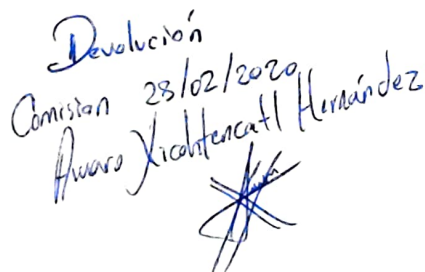 Devolución
Comision 28/02/2020
Alvaro Xicohtencatl Hernández